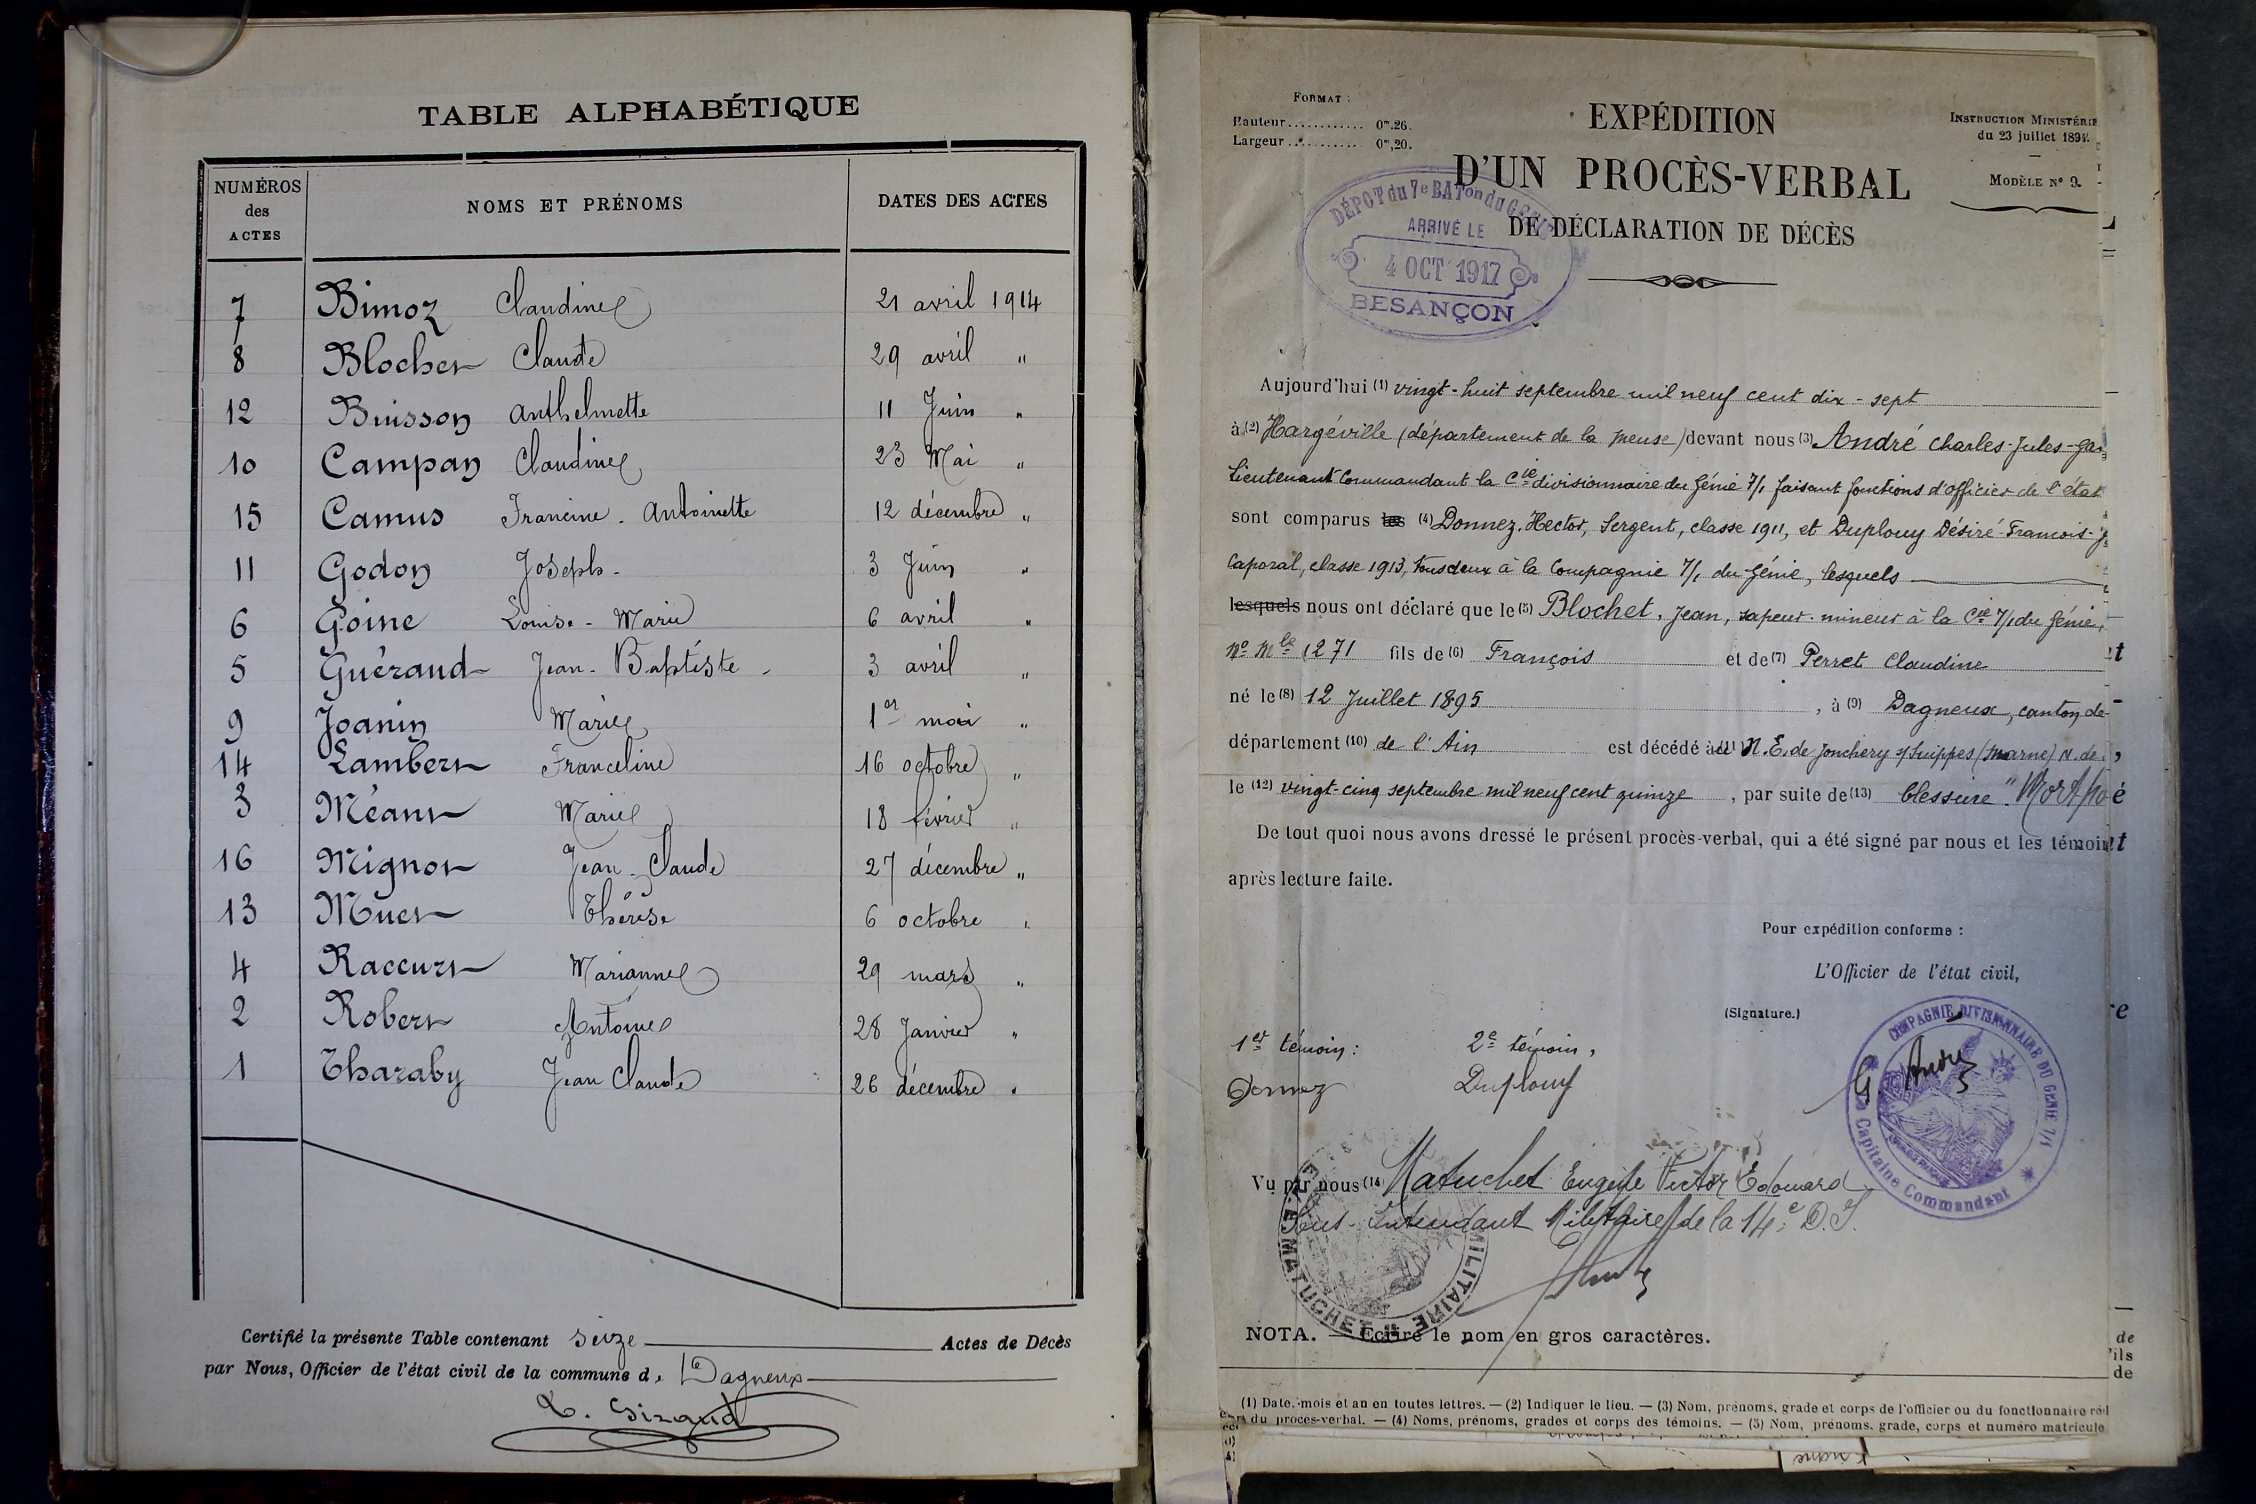 TABLE ALPHABÉTIQUE
NUMÉROS des ACTES NOMS ET PRÉNOMS DATES DES ACTES
7 Bimoz Claudine 21 avril 1914
8 Blochet Claude 29 avril "
12 Buisson Anthelmette 11 Juin "
10 Campan Claudine 23 Mai "
15 Camus Francine - Antoinette 12 décembre "
11 Godon Joseph - 3 Juin "
6 Goine Louise - Marie 6 avril "
5 Guéraud Jean - Baptiste - 3 avril "
9 Joanin Marie 1er mai "
14 Lambert Franceline 16 octobre "
3 Méant Marie 18 février "
16 Mignot Jean - Claude 27 décembre "
13 Muet Thérèse 6 octobre "
4 Raccurt Marianne 29 mars "
2 Robert Antoine 28 Janvier "
1 Tharaby Jean Claude 26 décembre "
Certifié la présente Table contenant seize Actes de Décès
par Nous, Officier de l'état civil de la commune de Dagneux
FORMAT :
Hauteur............ 0m.26.
Largeur............ 0m,20.
EXPÉDITION
D'UN PROCÈS-VERBAL
DE DÉCLARATION DE DÉCÈS
INSTRUCTION MINISTÉRIE
du 23 juillet 1894.
MODÈLE N° 9.
DÉPOT du 7e BATon du GÉNIE
ARRIVÉ LE
4 OCT 1917
BESANÇON
Aujourd'hui (1) vingt-huit septembre mil neuf cent dix-sept
à (2) Hargéville (département de la Meuse) devant nous (3) André Charles-Jules-
Lieutenant Commandant la Cie divisionnaire du Génie 7/1 faisant fonctions d'officier de l'état
sont comparus les (4) Donnez, Hector, Sergent, classe 1911, et Duplouy Désiré-François-
Caporal, classe 1913, tous deux à la Compagnie 7/1 du Génie, lesquels
lesquels nous ont déclaré que le (5) Blochet, Jean, sapeur-mineur à la Cie 7/1 du Génie,
No Mle 1271 fils de (6) François et de (7) Perret Claudine
né le (8) 12 Juillet 1895, à (9) Dagneux, canton de
département (10) de l'Ain est décédé à (11) N.E. de Jonchery s/Suippes (Marne) N. de
le (12) vingt-cinq septembre mil neuf cent quinze, par suite de (13) blessure "Mort po
De tout quoi nous avons dressé le présent procès-verbal, qui a été signé par nous et les témoin
après lecture faite.
Pour expédition conforme :
L'Officier de l'état civil,
(Signature.)
1er témoin : 2e témoin,
Donnez Duplouy
G André
COMPAGNIE DIVISIONNAIRE DU GÉNIE 7/1
Capitaine Commandant
Vu par nous (14) Matuchet Eugène Victor Edouard
Sous-Intendant Militaire de la 14e D.I.
MATUCHET MILITAIRE
NOTA. — Écrire le nom en gros caractères.
(1) Date, mois et an en toutes lettres. — (2) Indiquer le lieu. — (3) Nom, prénoms, grade et corps de l'officier ou du fonctionnaire réd
du procès-verbal. — (4) Noms, prénoms, grades et corps des témoins. — (5) Nom, prénoms, grade, corps et numéro matricule